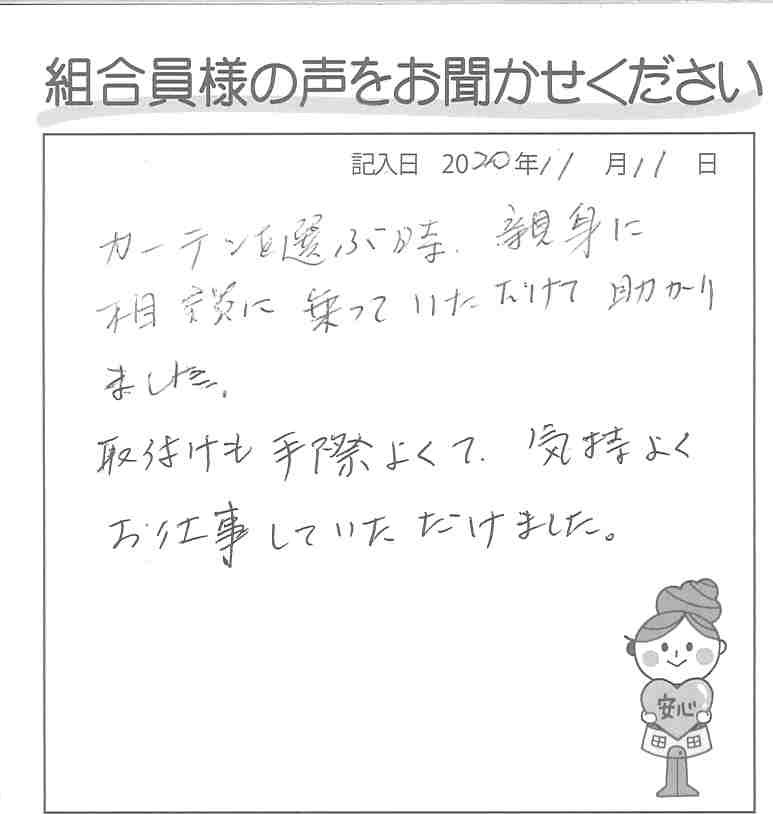 組合員様の声をお聞かせください
記入日 2020年11月11日
カーテンを選ぶ時、親身に
相談に乗っていただけて助かり
ました。
取付けも手際よくて、気持よく
お仕事していただけました。
安心